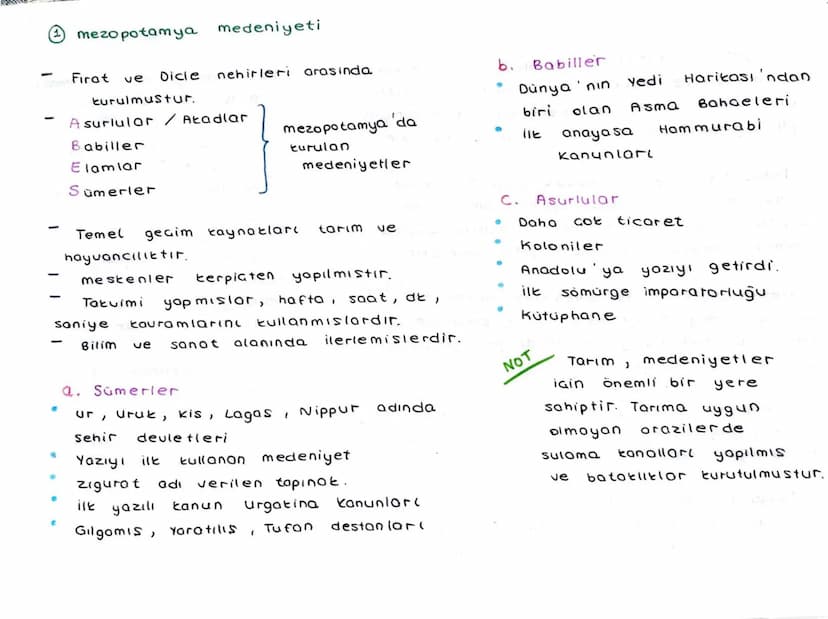 1 mezopotamya medeniyeti
- Fırat ve Dicle nehirleri arasında
kurulmustur.
- Asurlular / Akadlar
Babiller
Elamlar
Sümerler
mezopotamya'da
kurulan
medeniyetler
- Temel gecim kaynakları tarım ve
hayvancılıktır.
- meskenler kerpicten yapılmıstır.
- Takvimi yapmıslar, hafta, saat, dk,
saniye kavramlarını kullanmıslardır.
- Bilim ve sanat alanında ilerlemislerdir.
a. Sümerler
• ur, uruk, kis, Lagas, Nippur adında
sehir devletleri
• Yazıyı ilk kullanan medeniyet
• zigurat adı verilen tapınak.
• ilk yazılı kanun Urgakina kanunları
• Gılgamıs, Yaratılıs, Tufan destanları
b. Babiller
• Dünya'nın Yedi Harikası'ndan
biri olan Asma Bahceleri
• ilk anayasa Hammurabi
Kanunları
C. Asurlular
• Daha cok ticaret
• Koloniler
• Anadolu'ya yazıyı getirdi.
• ilk sömürge imparatorluğu
• Kütüphane
NOT Tarım, medeniyetler
icin önemli bir yere
sahiptir. Tarıma uygun
olmayan arazilerde
sulama kanalları yapılmıs
ve bataklıklar kurutulmustur.